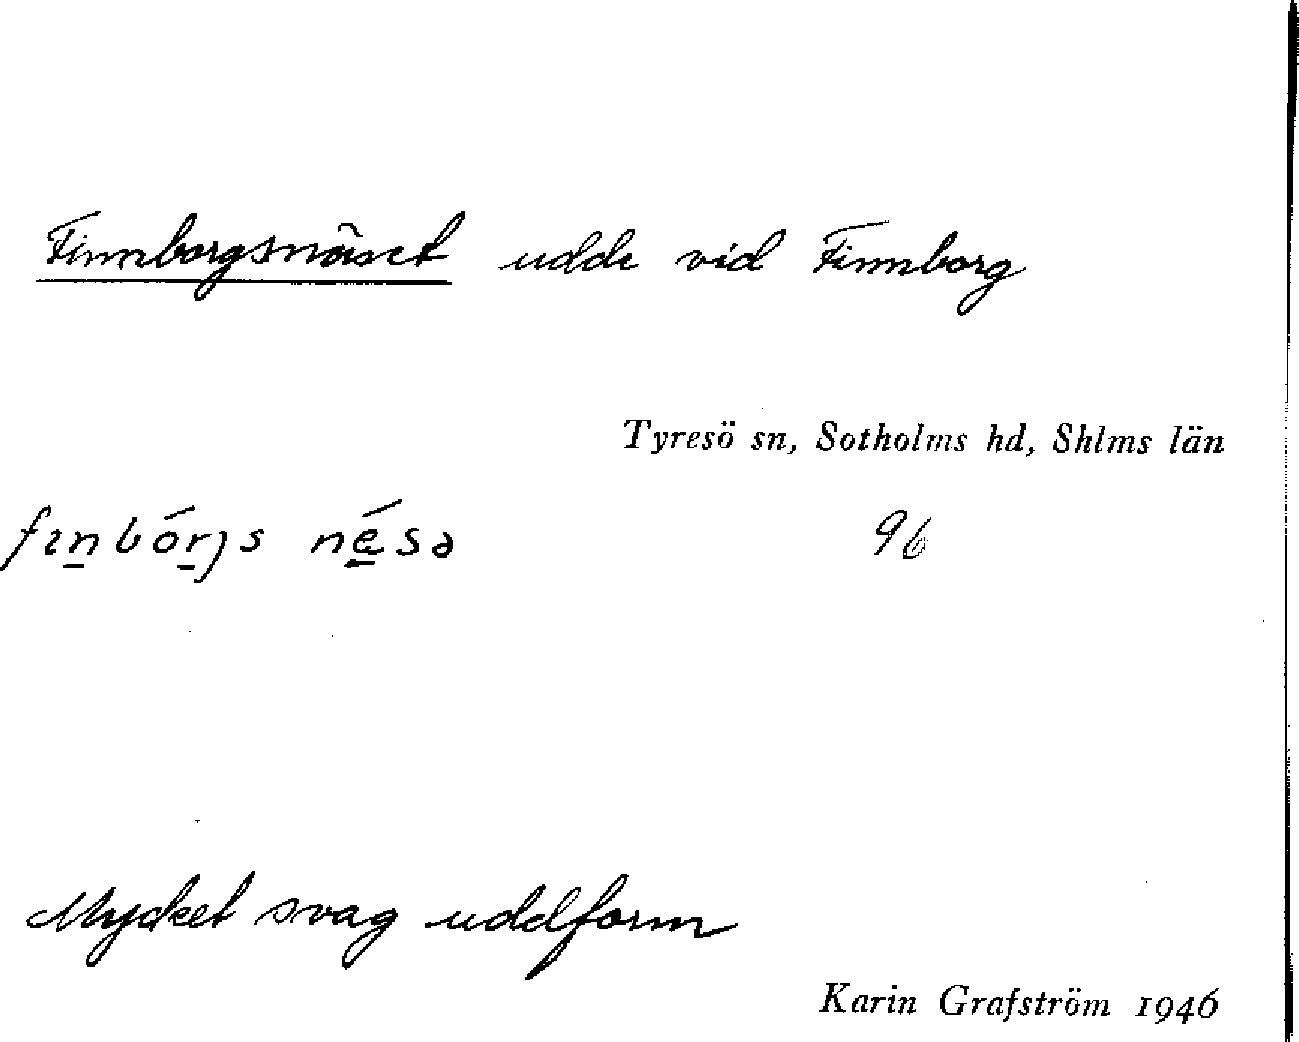 Finnborgsnäset udde vid Finnborg
Tyresö sn, Sotholms hd, Shlms län
fɪn̲bór̲ȷs né̲sə 96
Mycket svag uddform
Karin Grafström 1946